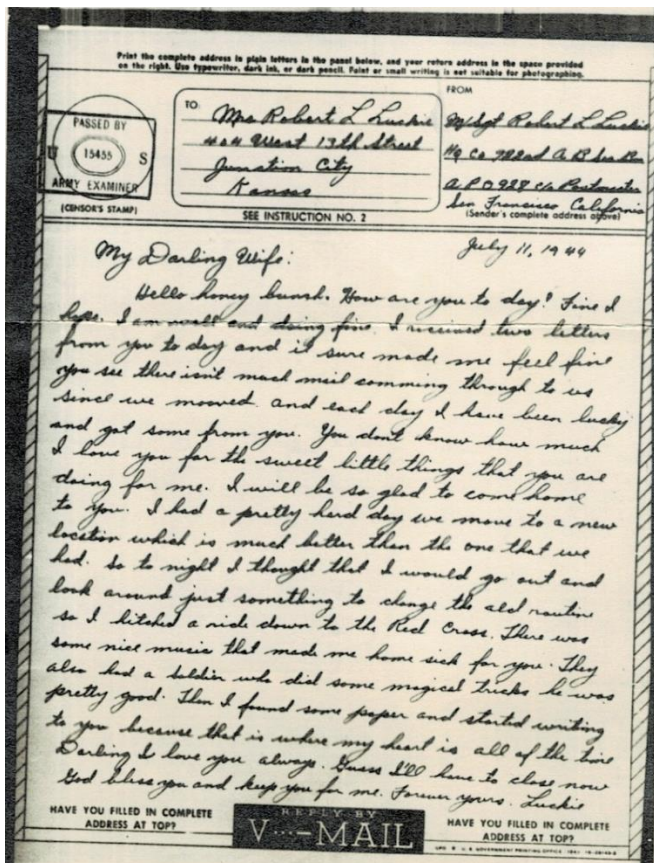 Print the complete address in plain letters in the panel below, and your return address in the space provided
on the right. Use typewriter, dark ink, or dark pencil. Faint or small writing is not suitable for photographing.
TO:
Mrs Robert L Luckie
404 West 13th Street
Junction City
Kansas
FROM
M/Sgt Robert L Luckie
Hq Co 722nd A B Sea Bn
A.P.O 928 c/o Postmaster
San Francisco California
(Sender's complete address above)
PASSED BY
U 15455 S
ARMY EXAMINER
(CENSOR'S STAMP)
SEE INSTRUCTION NO. 2
July 11, 1944
My Darling Wife:
Hello honey bunch. How are you to day? Fine I
hope. I am well and doing fine. I received two letters
from you to day and it sure made me feel fine
you see there isn't much mail comming through to us
since we mooved. and each day I have been lucky
and got some from you. You dont know how much
I love you for the sweet little things that you are
doing for me. I will be so glad to come home
to you. I had a pretty hard day we move to a new
location which is much better than the one that we
had. so to night I thought that I would go out and
look around just something to change the old routine
so I hitched a ride down to the Red Cross. There was
some nice music that made me home sick for you. They
also had a soldier who did some magical tricks he was
pretty good. Then I found some paper and started writing
to you because that is where my heart is all of the time
Darling I love you always. Guess I'll have to close now
God bless you and keep you for me. Forever yours. Luckie
HAVE YOU FILLED IN COMPLETE
ADDRESS AT TOP?
REPLY BY
V···—MAIL
HAVE YOU FILLED IN COMPLETE
ADDRESS AT TOP?
U.S. GOVERNMENT PRINTING OFFICE